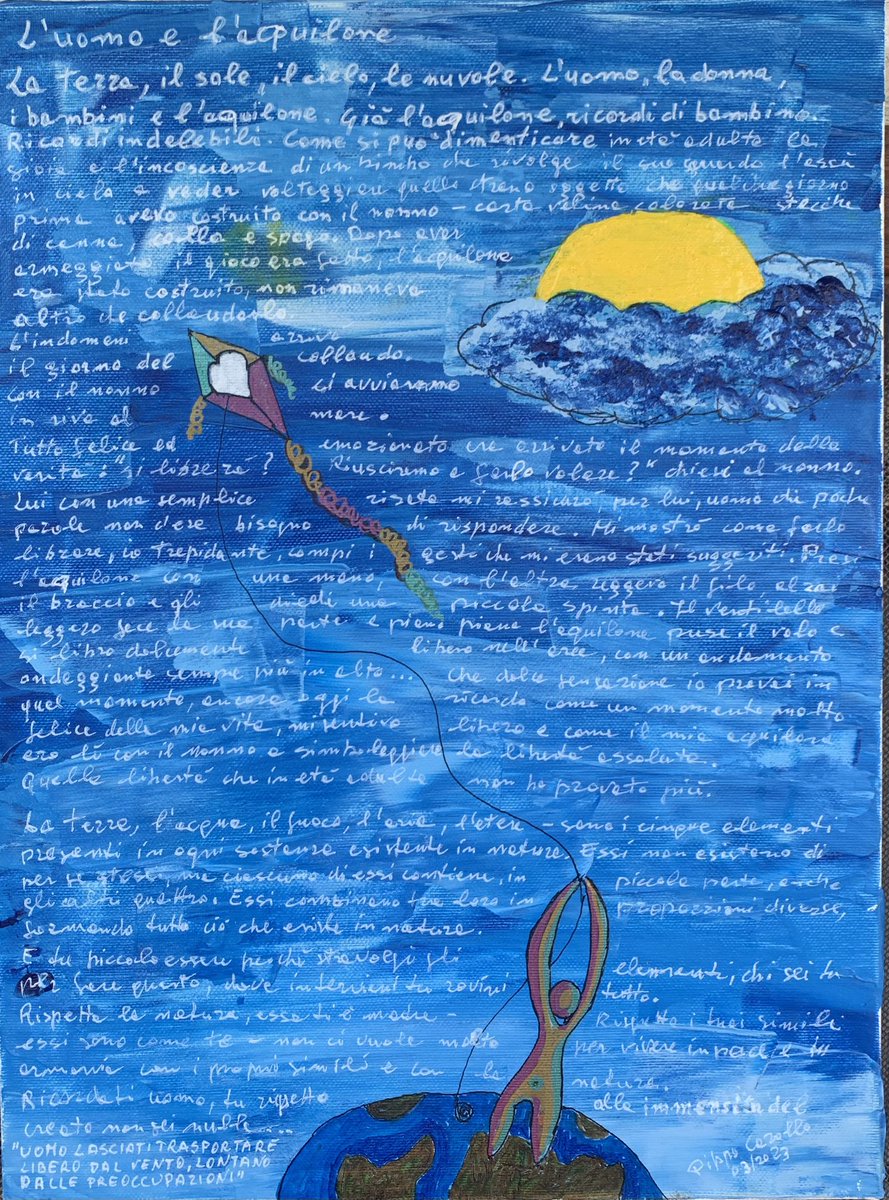 L'uomo e l'aquilone
La terra, il sole, il cielo, le nuvole. L'uomo, la donna,
i bambini e l'aquilone. Già l'aquilone, ricordi di bambino.
Ricordi indelebili. Come si può dimenticare in età adulta la
gioia e l'incoscienza di un bimbo che rivolge il suo sguardo
in cielo a veder volteggiare quello strano oggetto che qualche giorno
prima aveva costruito con il nonno - carta velina colorata stecche
di canna, colla e spago. Dopo aver
armeggiato il gioco era fatto, l'aquilone
era stato costruito, non rimaneva
altro che collaudarlo
L'indomani arrivò
il giorno del collaudo.
con il nonno ci avviammo
in riva al mare.
Tutto felice ed emozionato era arrivato il momento della
verità: "si librerà? Riusciremo a farlo volare?" chiesi al nonno.
Lui con una semplice risata mi rassicurò, per lui, uomo di poche
parole non c'era bisogno di rispondere. Mi mostrò come farlo
librare, io trepidante, compì i gesti che mi erano stati suggeriti. Presi
l'aquilone con una mano, con l'altra reggevo il filo, alzai
il braccio e gli diedi una piccola spinta. Il venticello
leggero fece la sua parte e piano piano l'aquilone prese il volo e
si librò dolcemente libero nell'aria, con un andamento
ondeggiante sempre più in alto... Che dolce sensazione io provai in
quel momento, ancora oggi la ricordo come un momento molto
felice della mia vita, mi sentivo libero e come il mio aquilone
ero lì con il nonno a simboleggiare la libertà assoluta.
Quella libertà che in età adulta non ho provato più.
La terra, l'acqua, il fuoco, l'aria, l'etere - sono i cinque elementi
presenti in ogni sostanza esistente in natura. Essi non esistono di
per se stessi, ma ciascuno di essi contiene, in piccola parte, anche
gli altri quattro. Essi combinano tra loro in proporzioni diverse,
formando tutto ciò che esiste in natura.
E tu piccolo essere perché stravolgi gli elementi, chi sei tu
per fare questo, dove intervieni tu rovini tutto.
Rispetta la natura, essa ti è madre - Rispetta i tuoi simili
essi sono come te - non ci vuole molto per vivere in pace e in
armonia con i propri simili e con la natura.
Ricordati uomo, tu rispetto alla immensità del
creato non sei nulla...
"UOMO LASCIATI TRASPORTARE
LIBERO DAL VENTO, LONTANO
DALLE PREOCCUPAZIONI"
Pippo Carollo
03/2023